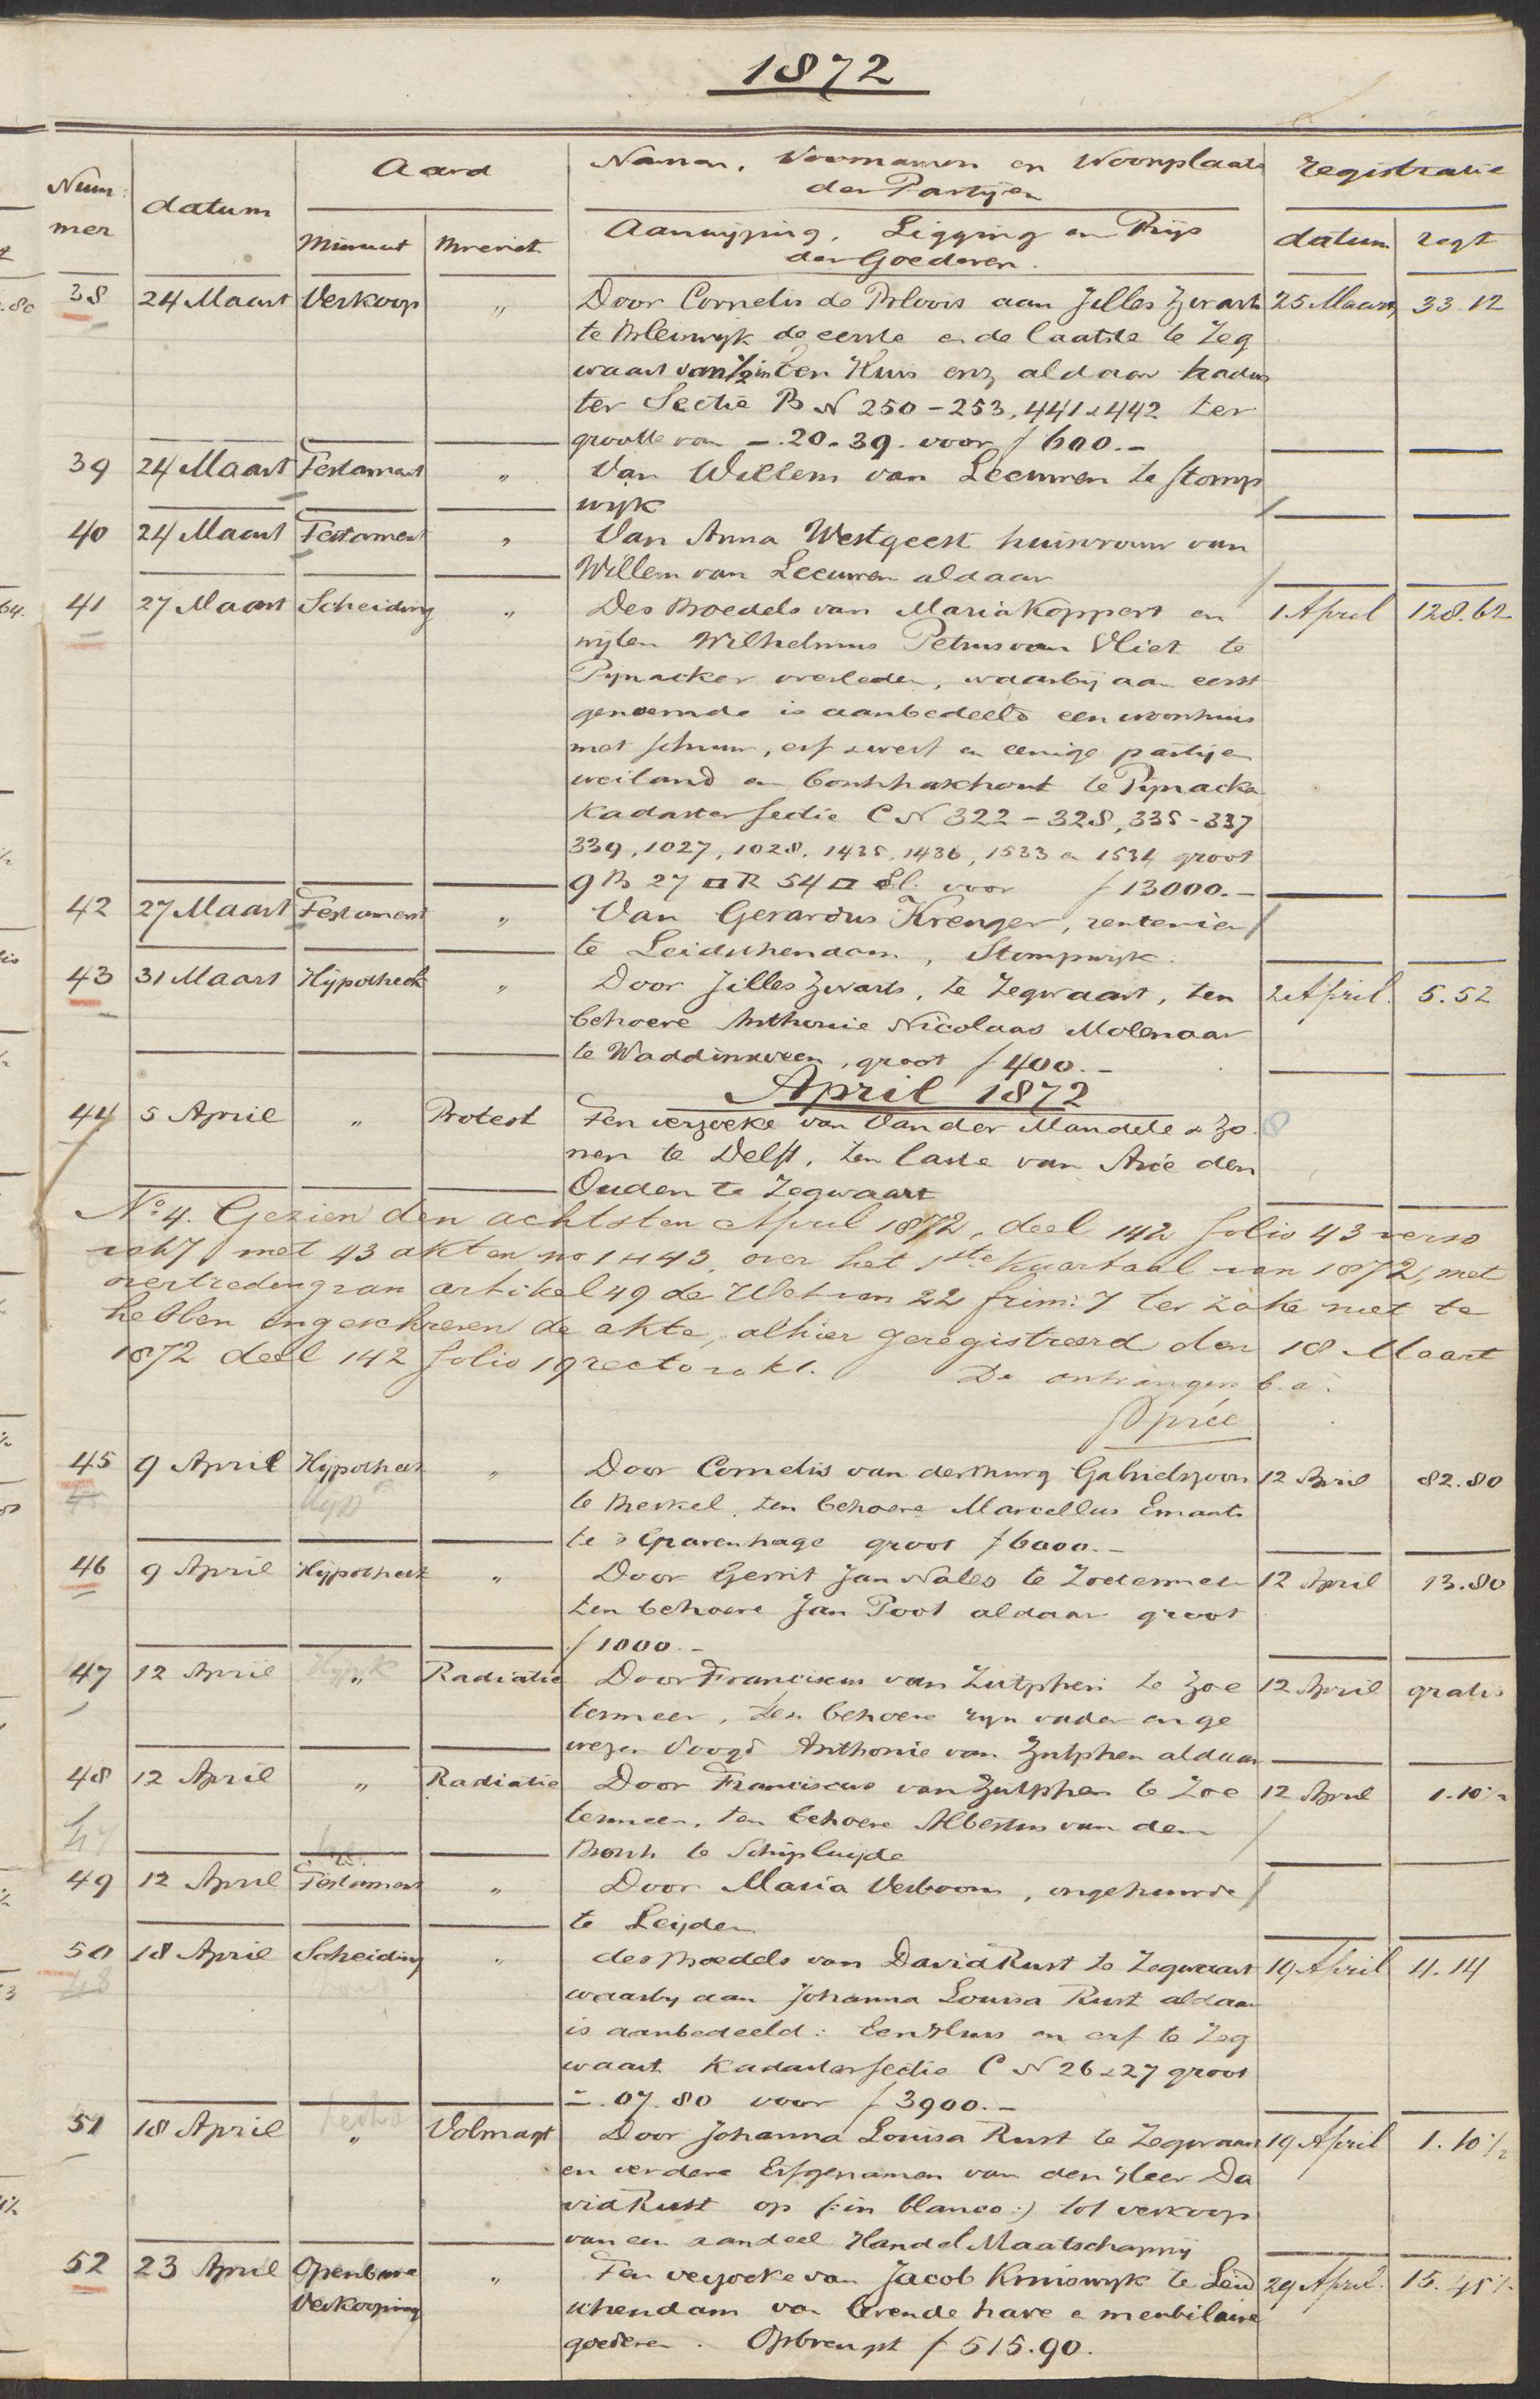 1872
Nummer datum Aard Namen, Voornamen en Woonplaats der Partijen registratie
Minuut Brevet Aanwijzing, Ligging en Prijs der Goederen. datum regt
38 24 Maart Verkoop „ Door Cornelis de Bloois aan Jilles Zwarts 25 Maart 33.12
te Bleiswijk de eerste en de laatste te Zeg
waart van 1/2 in Een Huis enz aldaar kadas
ter Sectie B N 250-253, 441 & 442 ter
grootte van -.20-39. voor f 600.-
39 24 Maart Testament „ Van Willem van Leeuwen te Stomp
wijk
40 24 Maart Testament „ Van Anna Westgeest huisvrouw van
Willem van Leeuwen aldaar
41 27 Maart Scheiding „ Des Boedels van Maria Koppert en 1 April 128.62
wijlen Wilhelmus Petrus van Vliet te
Pijnacker overleden, waarbij aan eerst
genoemde is aanbedeeld een woonhuis
met schuur, erf & werf en eenige partije
weiland en boschhakhout te Pijnacker
Kadaster sectie C N 322-328, 335-337
339, 1027, 1028, 1435, 1436, 1533 en 1534 groot
9 B 27 □ R 54 □ El. voor f 13000.-
42 27 Maart Testament „ Van Gerardus Krenger, rentenier
te Leidschendam, Stompwijk.
43 31 Maart Hypotheek „ Door Jilles Zwarts, te Zegwaart, ten 2 April. 5.52
behoeve Anthonie Nicolaas Molenaar
te Waddinxveen, groot f 400.-
April 1872
44 5 April „ Protest Ten verzoeke van Van der Mandele & Zo
nen te Delft, ten laste van Arie den
Ouden te Zegwaart
No 4. Gezien den achtsten April 1872, deel 142 folio 43 verso
vak 7 met 43 akten no 1 - 43, over het 1ste Kwartaal van 1872, met
overtreding van artikel 49 de Wet van 22 frim: 7 ter zake niet te
hebben ingeschreven de akte, alhier geregistreerd den 18 Maart
1872 deel 142 folio 19 recto vak 1. De ontvanger b.a.
Sprée
45 9 April Hypotheek „ Door Cornelis van der Burg Gabrielszoon 12 April 82.80
te Berkel, ten behoeve Marcellus Emants
te 's Gravenhage groot f 6000.-
46 9 April Hypotheek „ Door Gerrit Jan Nales te Zoetermeer 12 April 13.80
ten behoeve Jan Poot aldaar groot
f 1000.-
47 12 April „ Radiatie Door Franciscus van Zutphen te Zoe 12 April gratis
termeer, ten behoeve zijn vader en ge
wezen Voogd Anthonie van Zutphen aldaar
48 12 April „ Radiatie Door Franciscus van Zutphen te Zoe 12 April 1.10½
termeer, ten behoeve Albertus van den
Bosch te Schipluijde
49 12 April Testament „ Door Maria Verboom, ongehuwde
te Leijden
50 18 April Scheiding „ des Boedels van David Rust te Zegwaart 19 April 4.14
waarby aan Johanna Louisa Rust aldaar
is aanbedeeld: Een Huis en erf te Zeg
waart Kadaster sectie C N 26 & 27 groot
-.07.80 voor f 3900.-
51 18 April „ Volmagt Door Johanna Louisa Rust te Zegwaart 19 April 1.10½
en verdere Erfgenamen van den Heer Da
vid Rust op (:in blanco:) tot verkoop
van een aandeel Handel Maatschappij
52 23 April Openbare Verkooping „ Ten verzoeke van Jacob Kruiswijk te Leid 29 April. 15.45½
schendam van levende have & meubilaire
goederen. Opbrengst f 515.90.